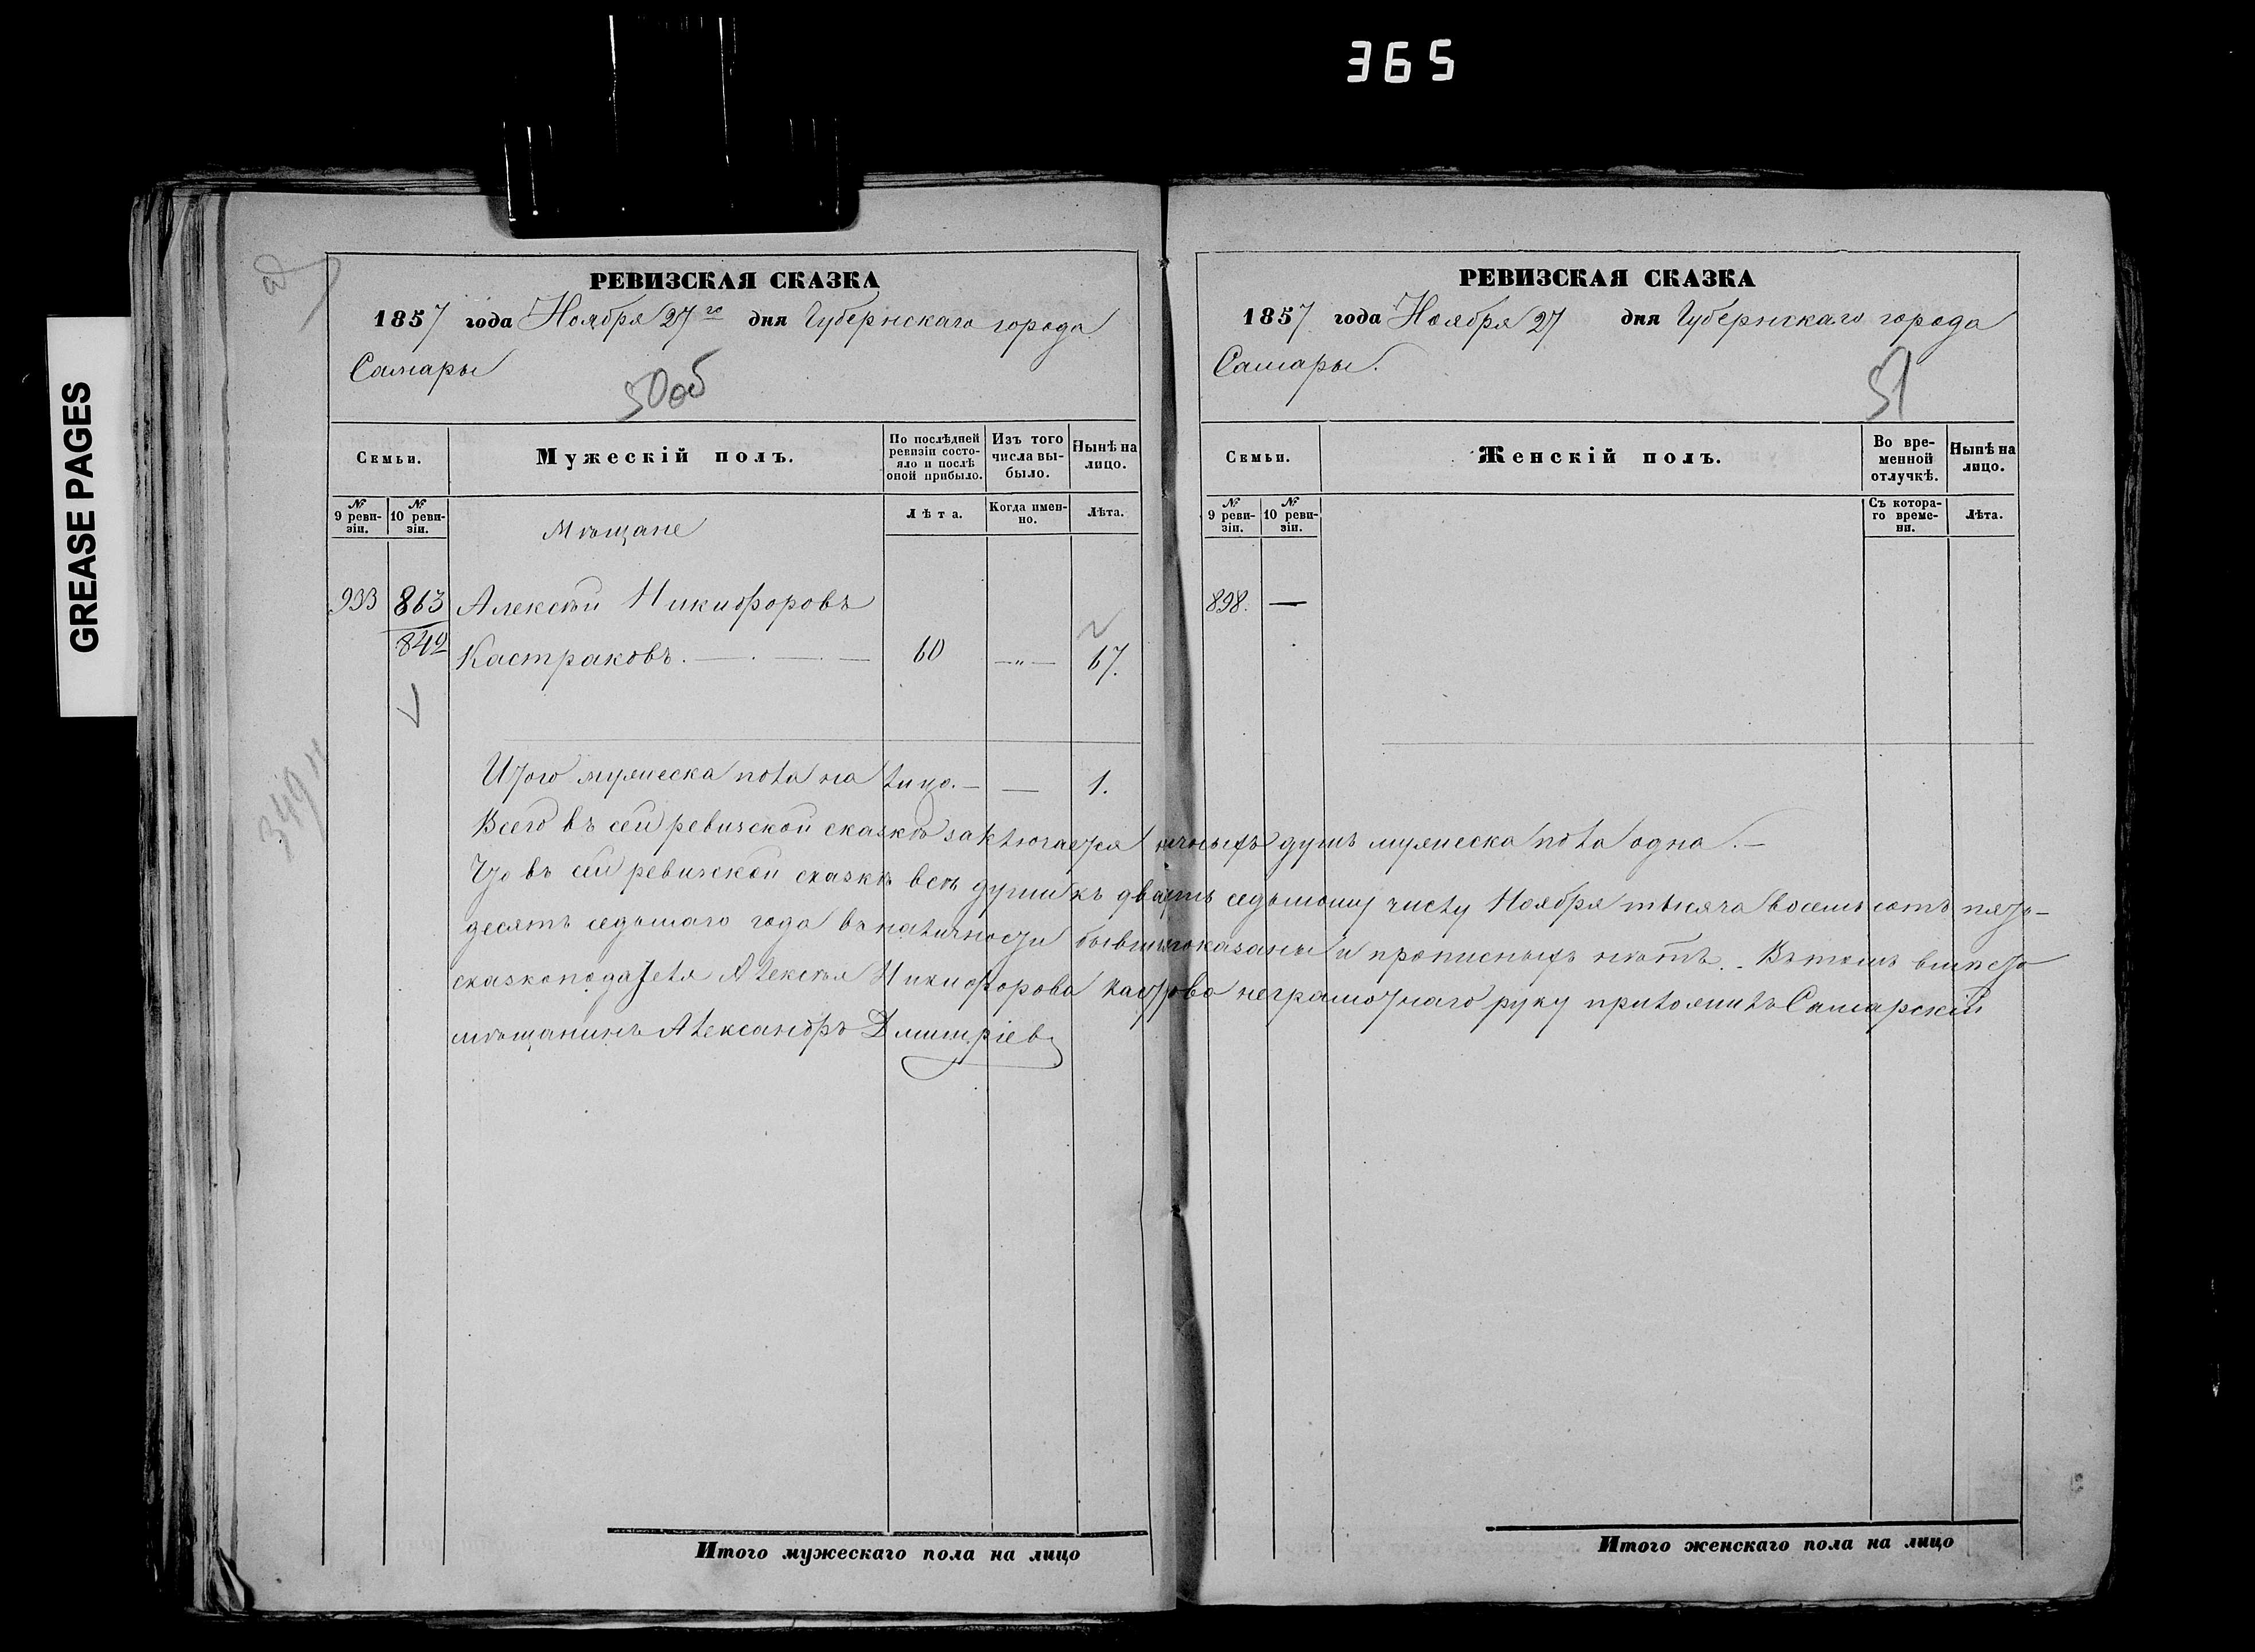 365
GREASE PAGES
РЕВИЗСКАЯ СКАЗКА
1857 года Ноября 27го дня Губернскаго города
Самары
50об
Семьи.
Мужескій полъ.
По послѣдней ревизіи состояло и послѣ оной прибыло.
Изъ того числа выбыло.
Нынѣ на лицо.
№ 9 ревизіи.
№ 10 ревизіи.
Лѣта.
Когда именно.
Лѣта.
Мѣщане
933 863 Алексѣй Никифоровъ
842 Кастраковъ. — 60 —„— 67.
349
Итого мужеска пола на лицо. — — 1.
РЕВИЗСКАЯ СКАЗКА
1857 года Ноября 27 дня Губернскаго города
Самары.
51
Семьи.
Женскій полъ.
Во временной отлучкѣ.
Нынѣ на лицо.
№ 9 ревизіи.
№ 10 ревизіи.
Съ котораго времени.
Лѣта.
898. —
Всего въ сей ревизской сказкѣ заключается душъ мужеска пола одна. —
Что въ сей ревизской сказкѣ всѣ души къ двадцать седьмому числу Ноября тысяча восемь сотъ пять-
десятъ седьмаго года въ наличности бывшія показаны и прописныхъ нѣтъ. - Въ томъ вмѣсто
сказкоподателя Алексѣя Никифорова неграмотнаго руку приложилъ Самарскій
мѣщанинъ Александръ Дмитріевъ
Итого мужескаго пола на лицо
Итого женскаго пола на лицо